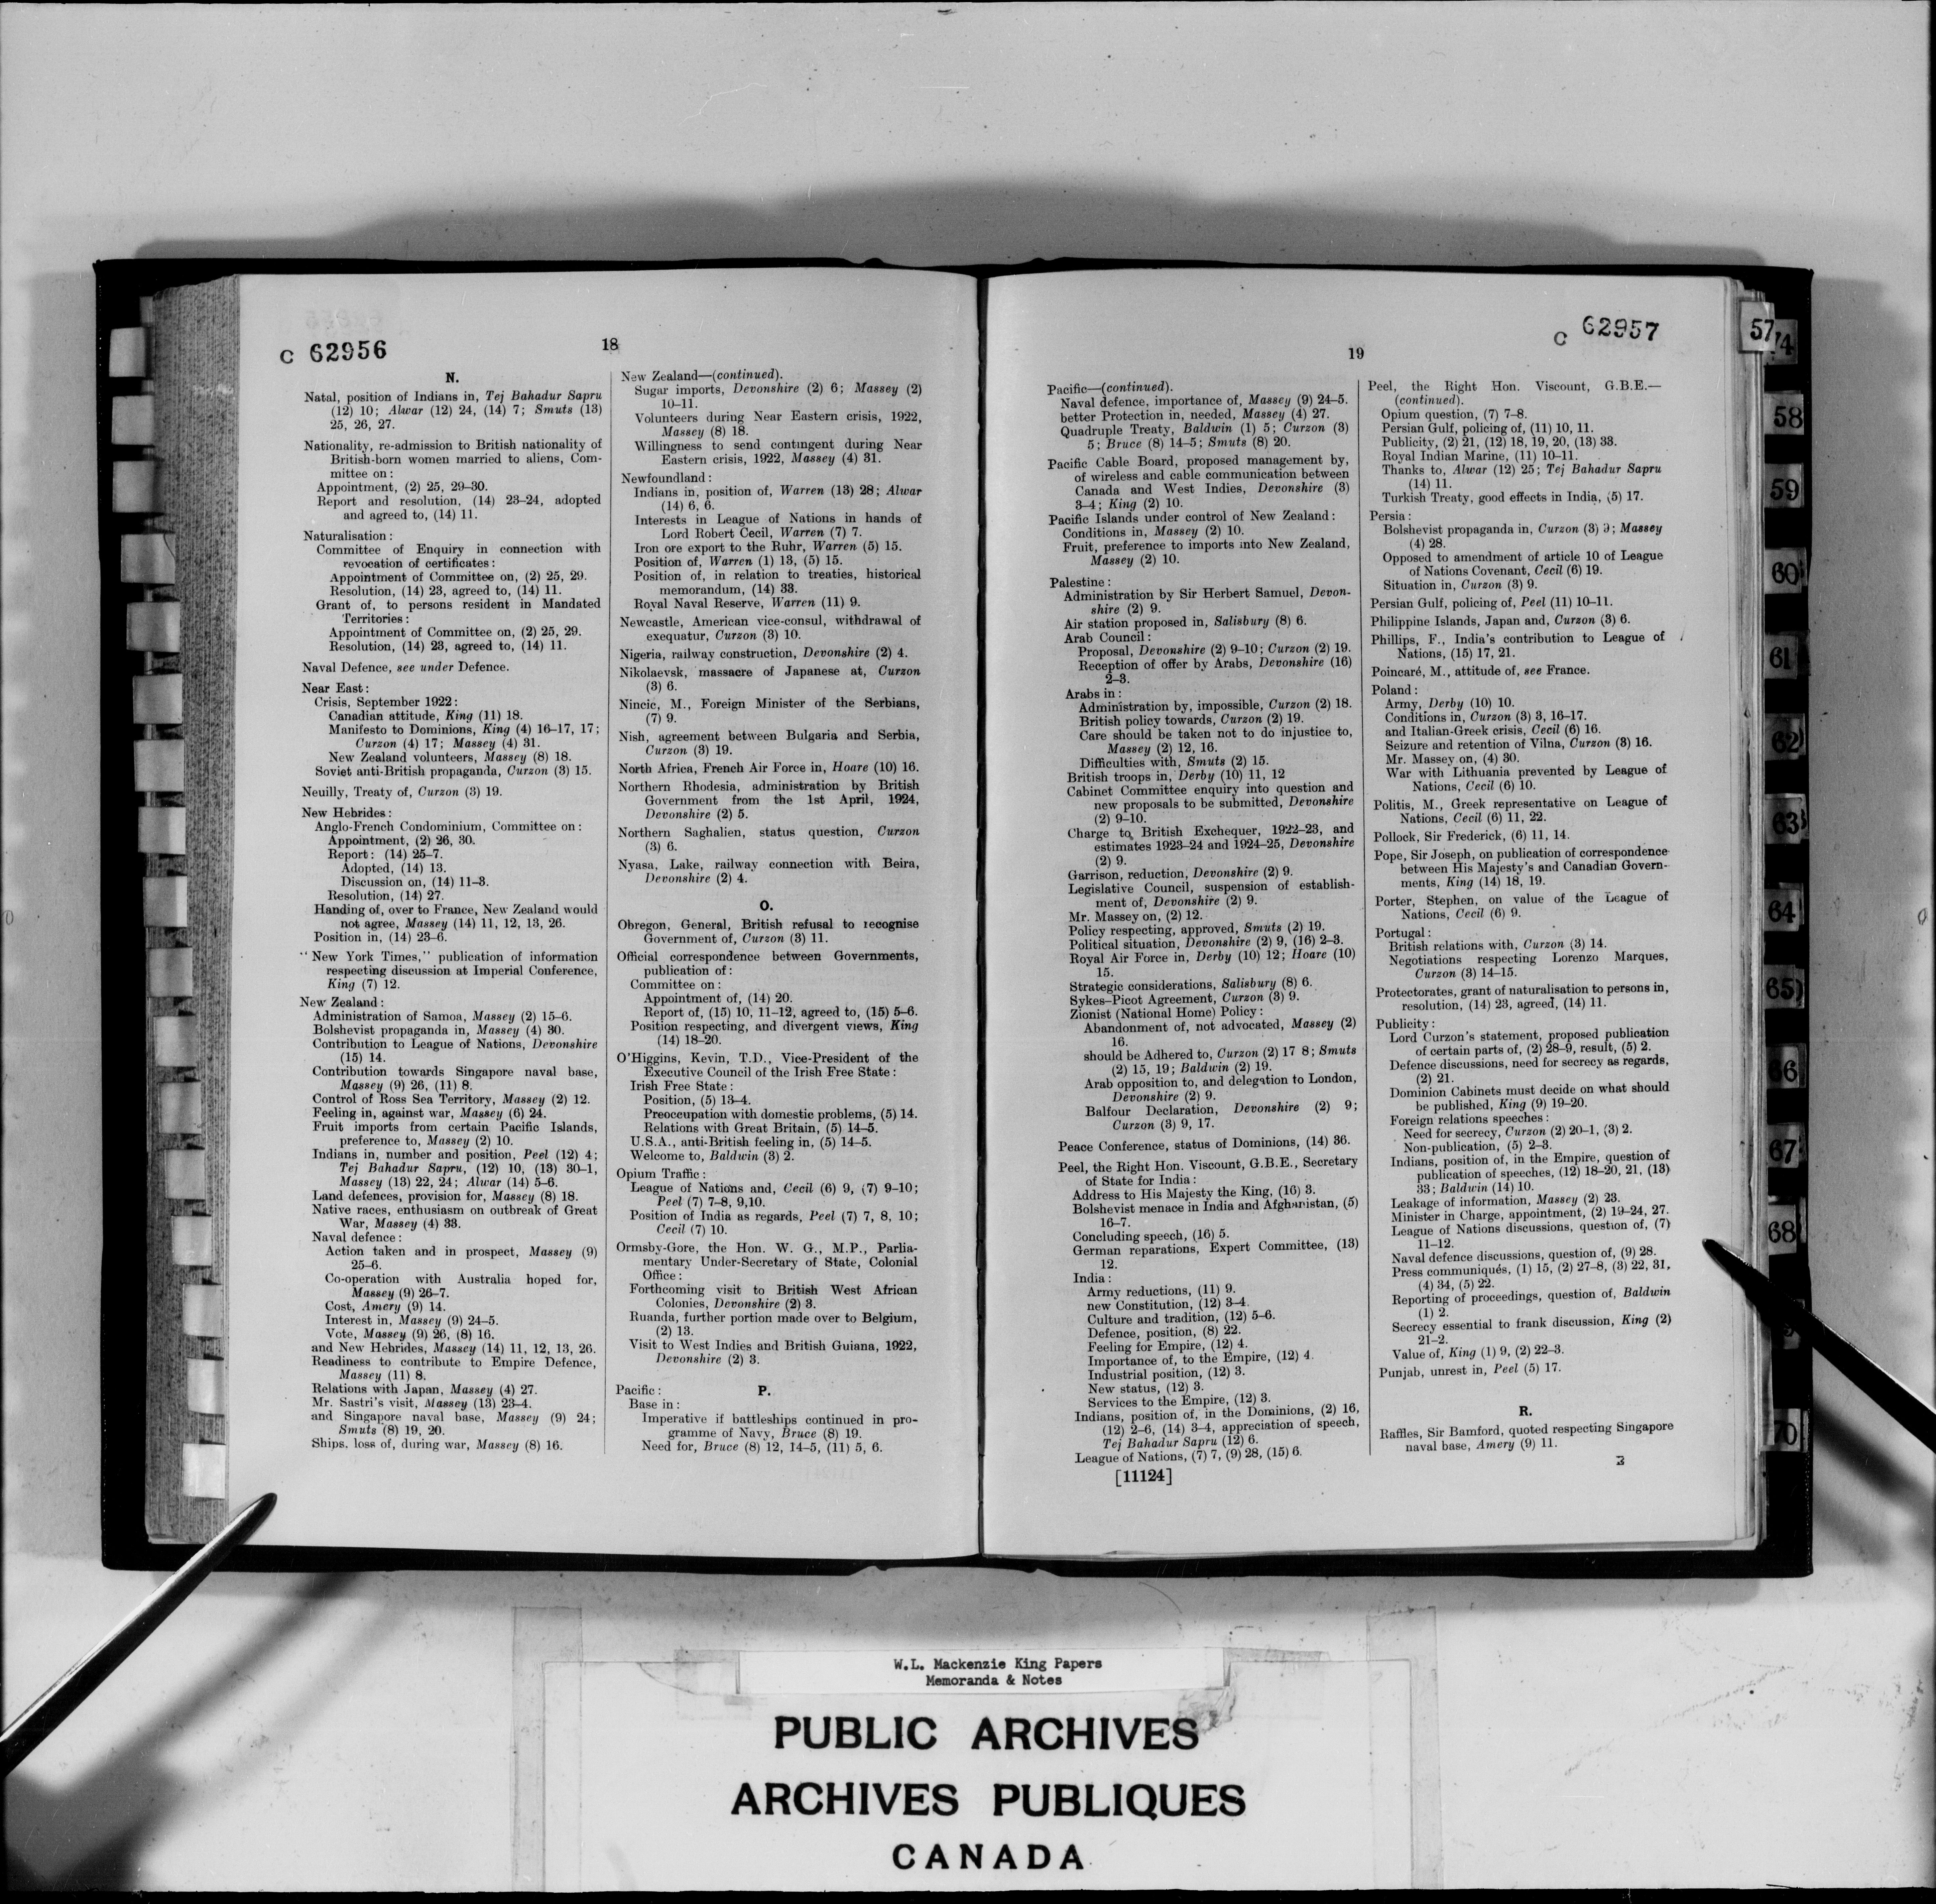 C 62956
18
N.
Natal, position of Indians in, Tej Bahadur Sapru
(12) 10; Alwar (12) 24, (14) 7; Smuts (13)
25, 26, 27.
Nationality, re-admission to British nationality of
British-born women married to aliens, Com-
mittee on:
Appointment, (2) 25, 29–30.
Report and resolution, (14) 23–24, adopted
and agreed to, (14) 11.
Naturalisation:
Committee of Enquiry in connection with
revocation of certificates:
Appointment of Committee on, (2) 25, 29.
Resolution, (14) 23, agreed to, (14) 11.
Grant of, to persons resident in Mandated
Territories:
Appointment of Committee on, (2) 25, 29.
Resolution, (14) 23, agreed to, (14) 11.
Naval Defence, see under Defence.
Near East:
Crisis, September 1922:
Canadian attitude, King (11) 18.
Manifesto to Dominions, King (4) 16–17, 17;
Curzon (4) 17; Massey (4) 31.
New Zealand volunteers, Massey (8) 18.
Soviet anti-British propaganda, Curzon (3) 15.
Neuilly, Treaty of, Curzon (3) 19.
New Hebrides:
Anglo-French Condominium, Committee on:
Appointment, (2) 26, 30.
Report: (14) 25–7.
Adopted, (14) 13.
Discussion on, (14) 11–3.
Resolution, (14) 27.
Handing of, over to France, New Zealand would
not agree, Massey (14) 11, 12, 13, 26.
Position in, (14) 23–6.
"New York Times," publication of information
respecting discussion at Imperial Conference,
King (7) 12.
New Zealand:
Administration of Samoa, Massey (2) 15–6.
Bolshevist propaganda in, Massey (4) 30.
Contribution to League of Nations, Devonshire
(15) 14.
Contribution towards Singapore naval base,
Massey (9) 26, (11) 8.
Control of Ross Sea Territory, Massey (2) 12.
Feeling in, against war, Massey (6) 24.
Fruit imports from certain Pacific Islands,
preference to, Massey (2) 10.
Indians in, number and position, Peel (12) 4;
Tej Bahadur Sapru, (12) 10, (13) 30–1,
Massey (13) 22, 24; Alwar (14) 5–6.
Land defences, provision for, Massey (8) 18.
Native races, enthusiasm on outbreak of Great
War, Massey (4) 33.
Naval defence:
Action taken and in prospect, Massey (9)
25–6.
Co-operation with Australia hoped for,
Massey (9) 26–7.
Cost, Amery (9) 14.
Interest in, Massey (9) 24–5.
Vote, Massey (9) 26, (8) 16.
and New Hebrides, Massey (14) 11, 12, 13, 26.
Readiness to contribute to Empire Defence,
Massey (11) 8.
Relations with Japan, Massey (4) 27.
Mr. Sastri's visit, Massey (13) 23–4.
and Singapore naval base, Massey (9) 24;
Smuts (8) 19, 20.
Ships, loss of, during war, Massey (8) 16.
New Zealand—(continued).
Sugar imports, Devonshire (2) 6; Massey (2)
10–11.
Volunteers during Near Eastern crisis, 1922,
Massey (8) 18.
Willingness to send contingent during Near
Eastern crisis, 1922, Massey (4) 31.
Newfoundland:
Indians in, position of, Warren (13) 28; Alwar
(14) 6, 6.
Interests in League of Nations in hands of
Lord Robert Cecil, Warren (7) 7.
Iron ore export to the Ruhr, Warren (5) 15.
Position of, Warren (1) 13, (5) 15.
Position of, in relation to treaties, historical
memorandum, (14) 33.
Royal Naval Reserve, Warren (11) 9.
Newcastle, American vice-consul, withdrawal of
exequatur, Curzon (3) 10.
Nigeria, railway construction, Devonshire (2) 4.
Nikolaevsk, massacre of Japanese at, Curzon
(3) 6.
Nincic, M., Foreign Minister of the Serbians,
(7) 9.
Nish, agreement between Bulgaria and Serbia,
Curzon (3) 19.
North Africa, French Air Force in, Hoare (10) 16.
Northern Rhodesia, administration by British
Government from the 1st April, 1924,
Devonshire (2) 5.
Northern Saghalien, status question, Curzon
(3) 6.
Nyasa, Lake, railway connection with Beira,
Devonshire (2) 4.
O.
Obregon, General, British refusal to recognise
Government of, Curzon (3) 11.
Official correspondence between Governments,
publication of:
Committee on:
Appointment of, (14) 20.
Report of, (15) 10, 11–12, agreed to, (15) 5–6.
Position respecting, and divergent views, King
(14) 18–20.
O'Higgins, Kevin, T.D., Vice-President of the
Executive Council of the Irish Free State:
Irish Free State:
Position, (5) 13–4.
Preoccupation with domestic problems, (5) 14.
Relations with Great Britain, (5) 14–5.
U.S.A., anti-British feeling in, (5) 14–5.
Welcome to, Baldwin (3) 2.
Opium Traffic:
League of Nations and, Cecil (6) 9, (7) 9–10;
Peel (7) 7–8, 9,10.
Position of India as regards, Peel (7) 7, 8, 10;
Cecil (7) 10.
Ormsby-Gore, the Hon. W. G., M.P., Parlia-
mentary Under-Secretary of State, Colonial
Office:
Forthcoming visit to British West African
Colonies, Devonshire (2) 3.
Ruanda, further portion made over to Belgium,
(2) 13.
Visit to West Indies and British Guiana, 1922,
Devonshire (2) 3.
P.
Pacific:
Base in:
Imperative if battleships continued in pro-
gramme of Navy, Bruce (8) 19.
Need for, Bruce (8) 12, 14–5, (11) 5, 6.
C 62957
19
Pacific—(continued).
Naval defence, importance of, Massey (9) 24–5.
better Protection in, needed, Massey (4) 27.
Quadruple Treaty, Baldwin (1) 5; Curzon (3)
5; Bruce (8) 14–5; Smuts (8) 20.
Pacific Cable Board, proposed management by,
of wireless and cable communication between
Canada and West Indies, Devonshire (3)
3–4; King (2) 10.
Pacific Islands under control of New Zealand:
Conditions in, Massey (2) 10.
Fruit, preference to imports into New Zealand,
Massey (2) 10.
Palestine:
Administration by Sir Herbert Samuel, Devon-
shire (2) 9.
Air station proposed in, Salisbury (8) 6.
Arab Council:
Proposal, Devonshire (2) 9–10; Curzon (2) 19.
Reception of offer by Arabs, Devonshire (16)
2–3.
Arabs in:
Administration by, impossible, Curzon (2) 18.
British policy towards, Curzon (2) 19.
Care should be taken not to do injustice to,
Massey (2) 12, 16.
Difficulties with, Smuts (2) 15.
British troops in, Derby (10) 11, 12
Cabinet Committee enquiry into question and
new proposals to be submitted, Devonshire
(2) 9–10.
Charge to British Exchequer, 1922–23, and
estimates 1923–24 and 1924–25, Devonshire
(2) 9.
Garrison, reduction, Devonshire (2) 9.
Legislative Council, suspension of establish-
ment of, Devonshire (2) 9.
Mr. Massey on, (2) 12.
Policy respecting, approved, Smuts (2) 19.
Political situation, Devonshire (2) 9, (16) 2–3.
Royal Air Force in, Derby (10) 12; Hoare (10)
15.
Strategic considerations, Salisbury (8) 6.
Sykes–Picot Agreement, Curzon (3) 9.
Zionist (National Home) Policy:
Abandonment of, not advocated, Massey (2)
16.
should be Adhered to, Curzon (2) 17 8; Smuts
(2) 15, 19; Baldwin (2) 19.
Arab opposition to, and delegation to London,
Devonshire (2) 9.
Balfour Declaration, Devonshire (2) 9;
Curzon (3) 9, 17.
Peace Conference, status of Dominions, (14) 36.
Peel, the Right Hon. Viscount, G.B.E., Secretary
of State for India:
Address to His Majesty the King, (16) 3.
Bolshevist menace in India and Afghanistan, (5)
16–7.
Concluding speech, (16) 5.
German reparations, Expert Committee, (13)
12.
India:
Army reductions, (11) 9.
new Constitution, (12) 3–4.
Culture and tradition, (12) 5–6.
Defence, position, (8) 22.
Feeling for Empire, (12) 4.
Importance of, to the Empire, (12) 4.
Industrial position, (12) 3.
New status, (12) 3.
Services to the Empire, (12) 3.
Indians, position of, in the Dominions, (2) 16,
(12) 2–6, (14) 3–4, appreciation of speech,
Tej Bahadur Sapru (12) 6.
League of Nations, (7) 7, (9) 28, (15) 6.
[11124]
Peel, the Right Hon. Viscount, G.B.E.—
(continued).
Opium question, (7) 7–8.
Persian Gulf, policing of, (11) 10, 11.
Publicity, (2) 21, (12) 18, 19, 20, (13) 33.
Royal Indian Marine, (11) 10–11.
Thanks to, Alwar (12) 25; Tej Bahadur Sapru
(14) 11.
Turkish Treaty, good effects in India, (5) 17.
Persia:
Bolshevist propaganda in, Curzon (3) 9; Massey
(4) 28.
Opposed to amendment of article 10 of League
of Nations Covenant, Cecil (6) 19.
Situation in, Curzon (3) 9.
Persian Gulf, policing of, Peel (11) 10–11.
Philippine Islands, Japan and, Curzon (3) 6.
Phillips, F., India's contribution to League of
Nations, (15) 17, 21.
Poincaré, M., attitude of, see France.
Poland:
Army, Derby (10) 10.
Conditions in, Curzon (3) 3, 16–17.
and Italian-Greek crisis, Cecil (6) 16.
Seizure and retention of Vilna, Curzon (3) 16.
Mr. Massey on, (4) 30.
War with Lithuania prevented by League of
Nations, Cecil (6) 10.
Politis, M., Greek representative on League of
Nations, Cecil (6) 11, 22.
Pollock, Sir Frederick, (6) 11, 14.
Pope, Sir Joseph, on publication of correspondence
between His Majesty's and Canadian Govern-
ments, King (14) 18, 19.
Porter, Stephen, on value of the League of
Nations, Cecil (6) 9.
Portugal:
British relations with, Curzon (3) 14.
Negotiations respecting Lorenzo Marques,
Curzon (3) 14–15.
Protectorates, grant of naturalisation to persons in,
resolution, (14) 23, agreed, (14) 11.
Publicity:
Lord Curzon's statement, proposed publication
of certain parts of, (2) 28–9, result, (5) 2.
Defence discussions, need for secrecy as regards,
(2) 21.
Dominion Cabinets must decide on what should
be published, King (9) 19–20.
Foreign relations speeches:
Need for secrecy, Curzon (2) 20–1, (3) 2.
Non-publication, (5) 2–3.
Indians, position of, in the Empire, question of
publication of speeches, (12) 18–20, 21, (13)
33; Baldwin (14) 10.
Leakage of information, Massey (2) 23.
Minister in Charge, appointment, (2) 19–24, 27.
League of Nations discussions, question of, (7)
11–12.
Naval defence discussions, question of, (9) 28.
Press communiqués, (1) 15, (2) 27–8, (3) 22, 31,
(4) 34, (5) 22.
Reporting of proceedings, question of, Baldwin
(1) 2.
Secrecy essential to frank discussion, King (2)
21–2.
Value of, King (1) 9, (2) 22–3.
Punjab, unrest in, Peel (5) 17.
R.
Raffles, Sir Bamford, quoted respecting Singapore
naval base, Amery (9) 11.
57
74
58
59
60
61
62
63
64
65
66
67
68
70
W.L. Mackenzie King Papers
Memoranda & Notes
PUBLIC ARCHIVES
ARCHIVES PUBLIQUES
CANADA